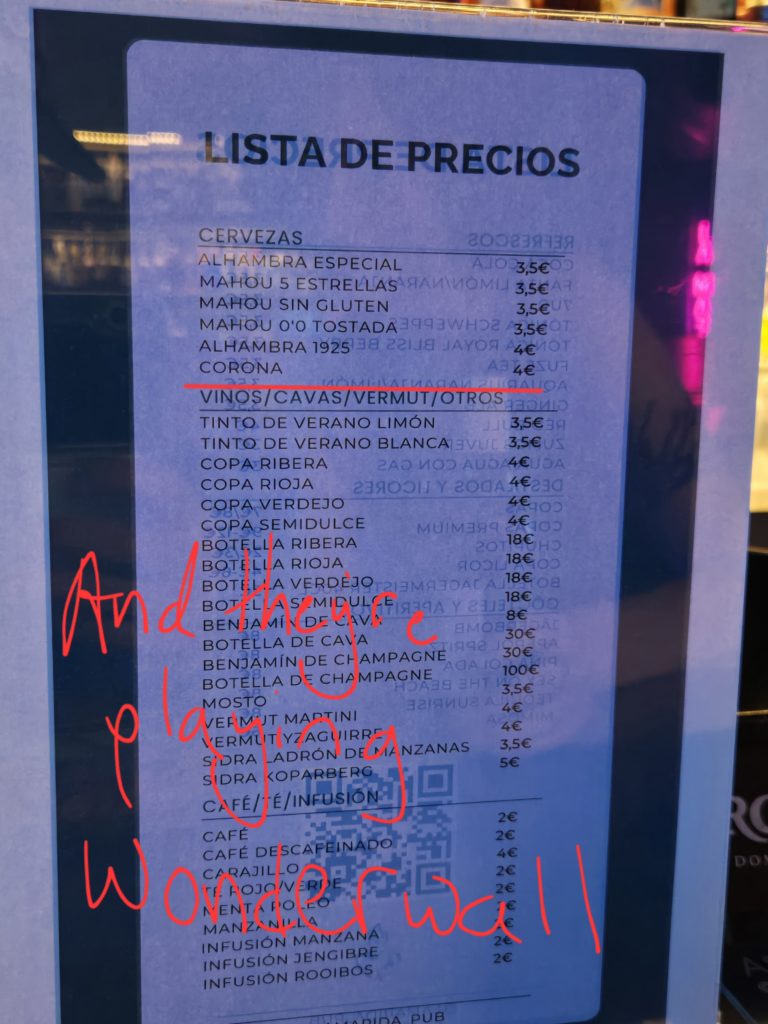 LISTA DE PRECIOS
CERVEZAS
ALHAMBRA ESPECIAL 3,5€
MAHOU 5 ESTRELLAS 3,5€
MAHOU SIN GLUTEN 3,5€
MAHOU 0'0 TOSTADA 3,5€
ALHAMBRA 1925 4€
CORONA 4€
VINOS/CAVAS/VERMUT/OTROS
TINTO DE VERANO LIMÓN 3,5€
TINTO DE VERANO BLANCA 3,5€
COPA RIBERA 4€
COPA RIOJA 4€
COPA VERDEJO 4€
COPA SEMIDULCE 4€
BOTELLA RIBERA 18€
BOTELLA RIOJA 18€
BOTELLA VERDEJO 18€
BOTELLA SEMIDULCE 18€
BENJAMÍN DE CAVA 8€
BOTELLA DE CAVA 30€
BENJAMÍN DE CHAMPAGNE 30€
BOTELLA DE CHAMPAGNE 100€
MOSTO 3,5€
VERMUT MARTINI 4€
VERMUT YZAGUIRRE 4€
SIDRA LADRÓN DE MANZANAS 3,5€
SIDRA KOPARBERG 5€
CAFÉ/TÉ/INFUSIÓN
CAFÉ 2€
CAFÉ DESCAFEINADO 2€
CARAJILLO 4€
TÉ ROJO/VERDE 2€
MENTA POLEO 2€
MANZANILLA
INFUSIÓN MANZANA
INFUSIÓN JENGIBRE 2€
INFUSIÓN ROOIBOS 2€
PUB
And they're
playing
Wonderwall